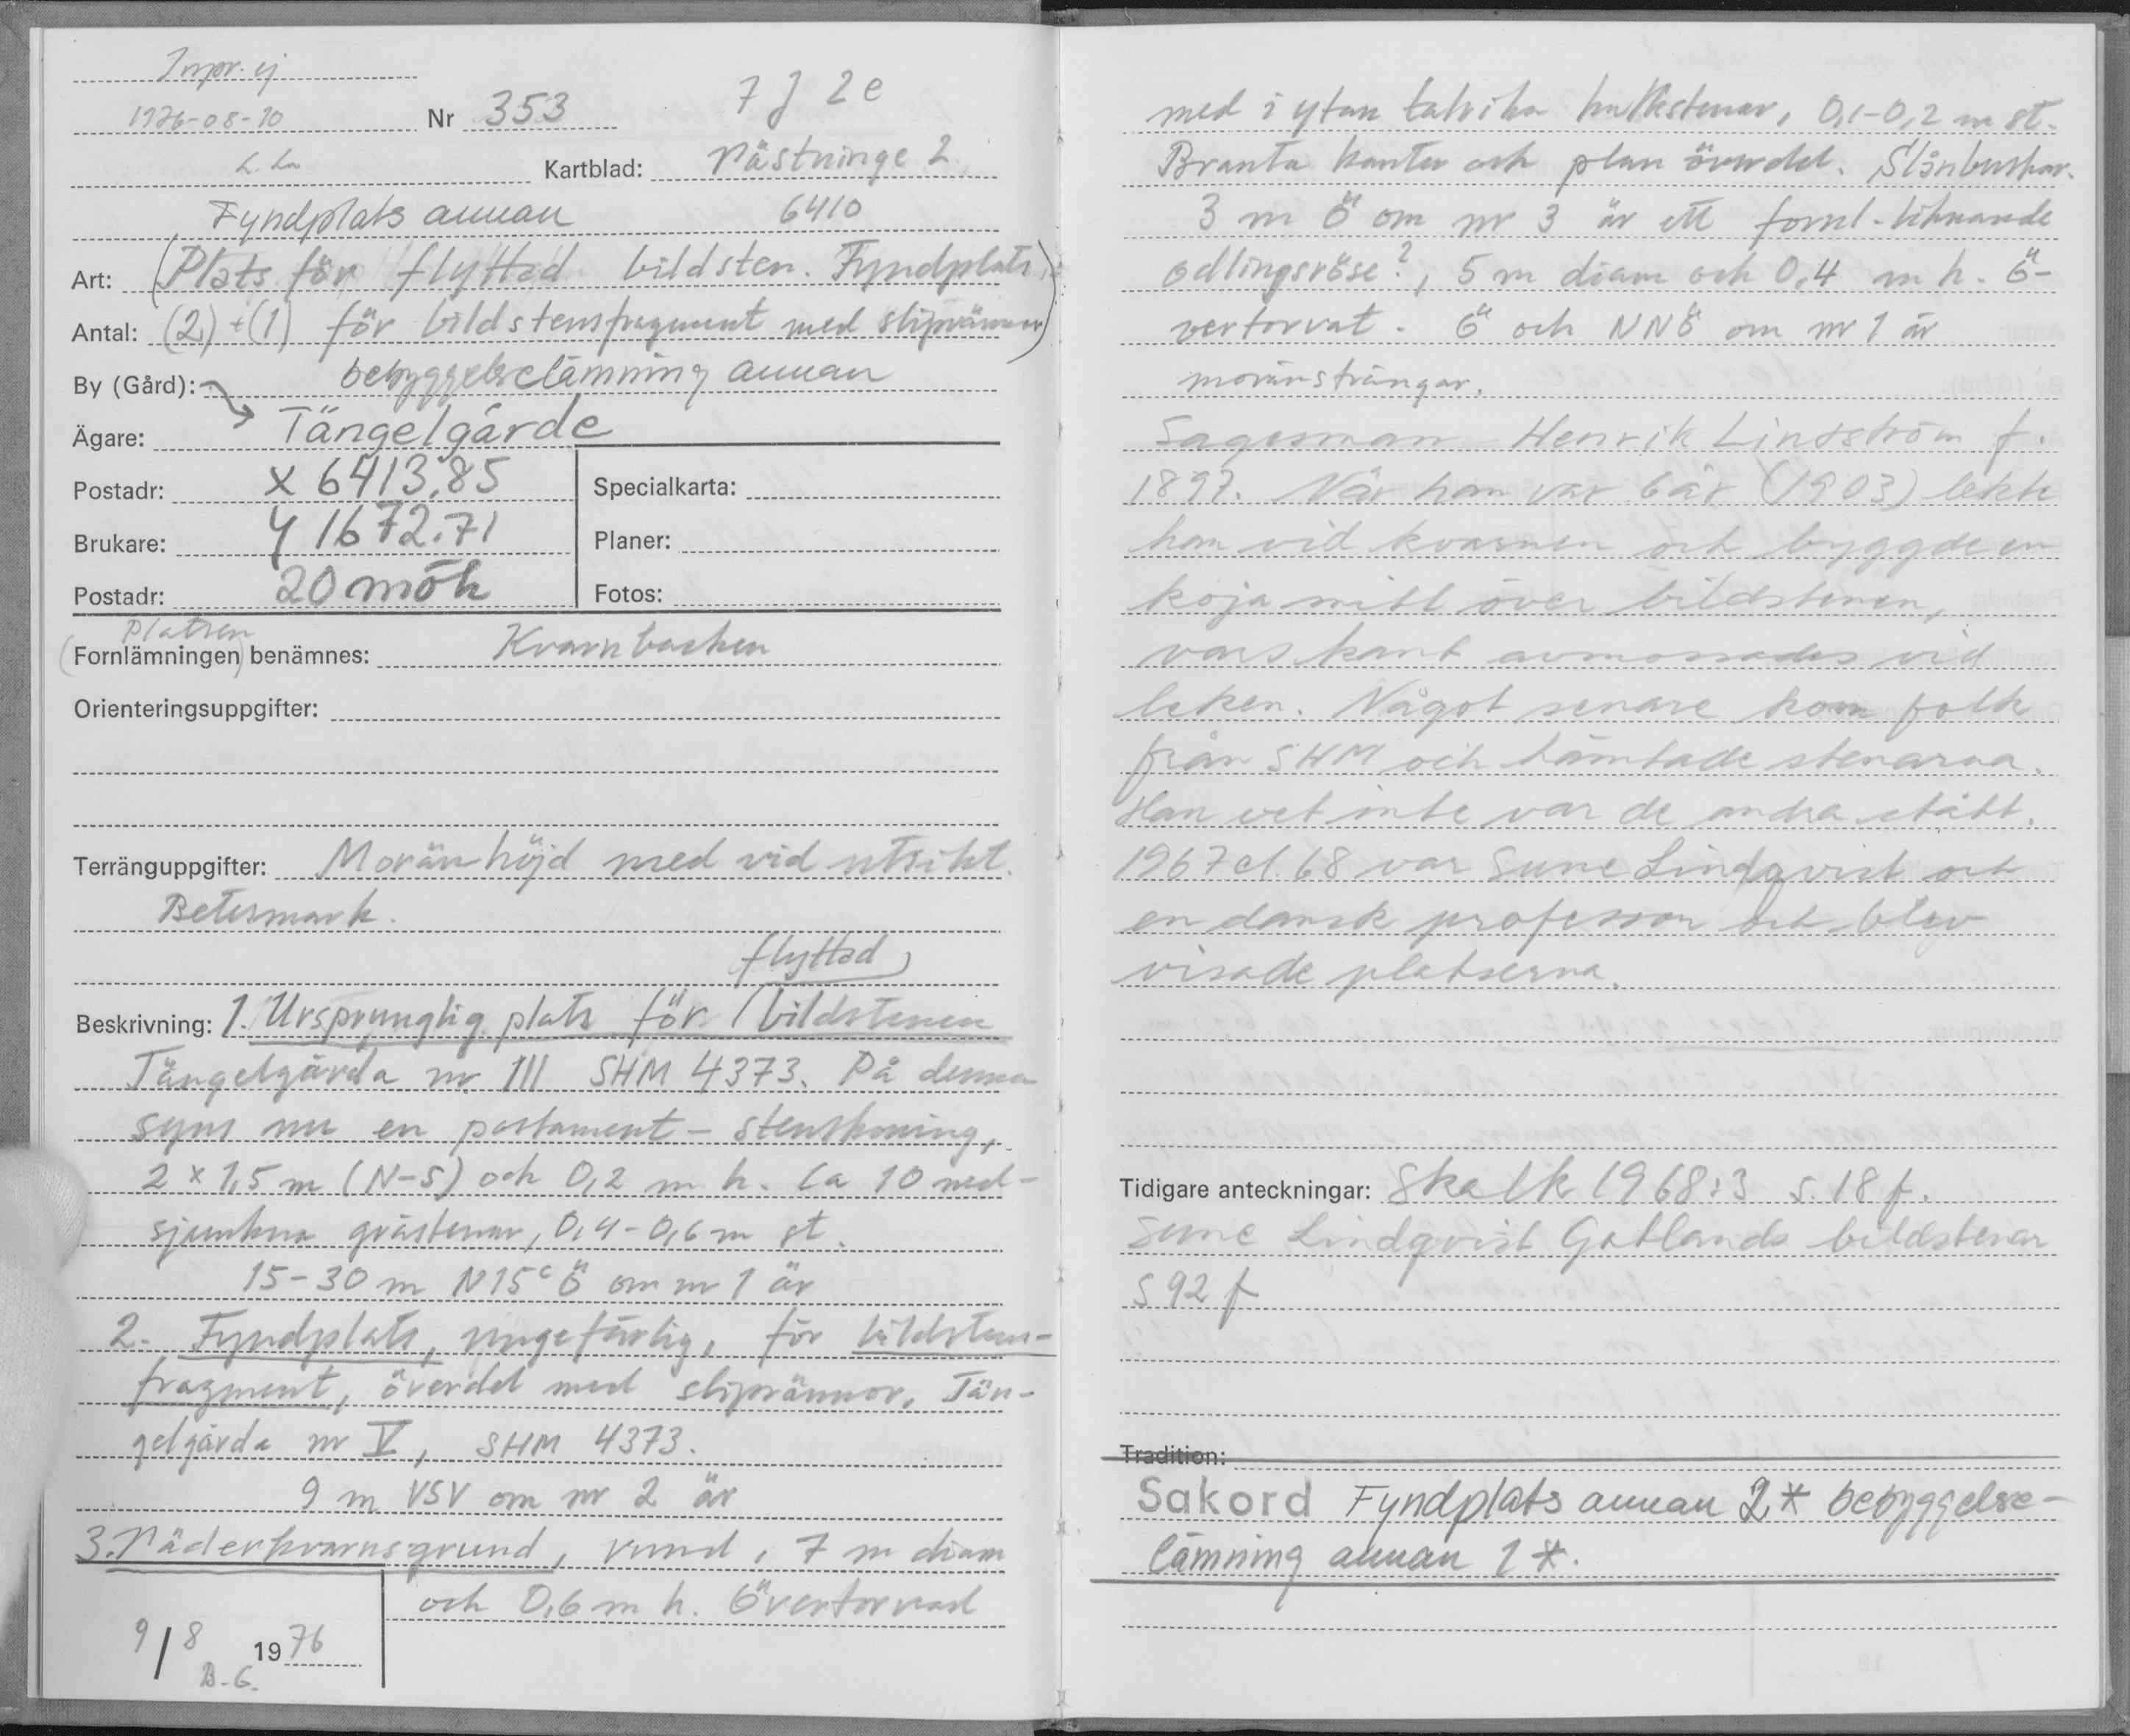 Inspr. ej
1976-08-10 Nr 353 7 J 2e
L. Ln Kartblad: Västninge 2
Fyndplats annan 6410
Art: (Plats för flyttad bildsten. Fyndplats
Antal: (2)+(1) för bildstensfragment med sliprännor)
By (Gård): bebyggelselämning annan
Ägare: Tängelgårde
Postadr: X 6413,85 Specialkarta:
Brukare: Y 1672.71 Planer:
Postadr: 20 möh Fotos:
Platsen
(Fornlämningen) benämnes: Kvarnbacken
Orienteringsuppgifter:
Terränguppgifter: Moränhöjd med vid utsikt.
Betesmark.
flyttad
Beskrivning: 1. Ursprunglig plats för / bildstenen
Tängelgårda nr III SHM 4373. På denna
syns nu en postament- stenskoning,
2 x 1,5 m (N-S) och 0,2 m h. Ca 10 ned-
sjunkna gråstenar, 0,4-0,6 m st.
15-30 m N15°Ö om nr 1 är
2. Fyndplats, ungefärlig, för bildstens-
fragment, överdel med sliprännor, Tän-
gelgårda nr V, SHM 4373.
9 m VSV om nr 2 är
3. Väderkvarnsgrund, rund, 7 m diam
och 0,6 m h. Övertorvad
9/8 1976
B.G.
med i ytan talrika kalkstenar, 0,1-0,2 m st.
Branta kanter och plan överdel. Slånbuskar.
3 m Ö om nr 3 är ett forml-liknande
odlingsröse?, 5 m diam och 0,4 m h. Ö-
vertorvat. Ö och NNÖ om nr 1 är
moränsträngar.
Sagesman Henrik Lindström f.
1897. När han var 6 år (1903) lekte
han vid kvarnen och byggde en
koja mitt över bildstenen,
vars kant avmossades vid
leken. Något senare kom folk
från SHM och hämtade stenarna.
Han vet inte var de andra stått.
1967 el. 68 var Sune Lindqvist och
en dansk professor och blev
visade platserna.
Tidigare anteckningar: Skalk 1968:3 s. 18 f.
Sune Lindqvist Gotlands bildstenar
s 92 f
Tradition:
Sakord Fyndplats annan 2* bebyggelse-
lämning annan 1*.